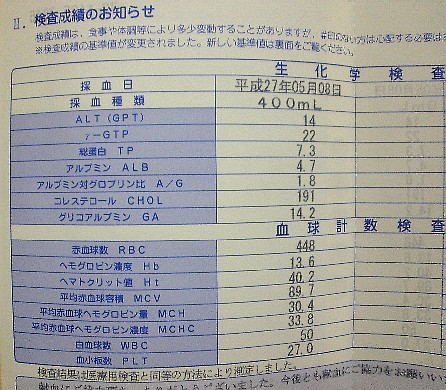 II. 検査成績のお知らせ
検査成績は、食事や体調等により多少変動することがありますが、#印のない方は心配する必要は
※検査成績の基準値が変更されました。新しい基準値は裏面をご覧ください。
生化学検査
採血日 平成27年05月08日
採血種類 400mL
ALT (GPT) 14
γ-GTP 22
総蛋白 TP 7.3
アルブミン ALB 4.7
アルブミン対グロブリン比 A/G 1.8
コレステロール CHOL 191
グリコアルブミン GA 14.2
血球計数検査
赤血球数 RBC 448
ヘモグロビン濃度 Hb 13.6
ヘマトクリット値 Ht 40.2
平均赤血球容積 MCV 89.7
平均赤血球ヘモグロビン量 MCH 30.4
平均赤血球ヘモグロビン濃度 MCHC 33.8
白血球数 WBC 50
血小板数 PLT 27.0
検査結果は医療用検査と同等の方法により測定しました。